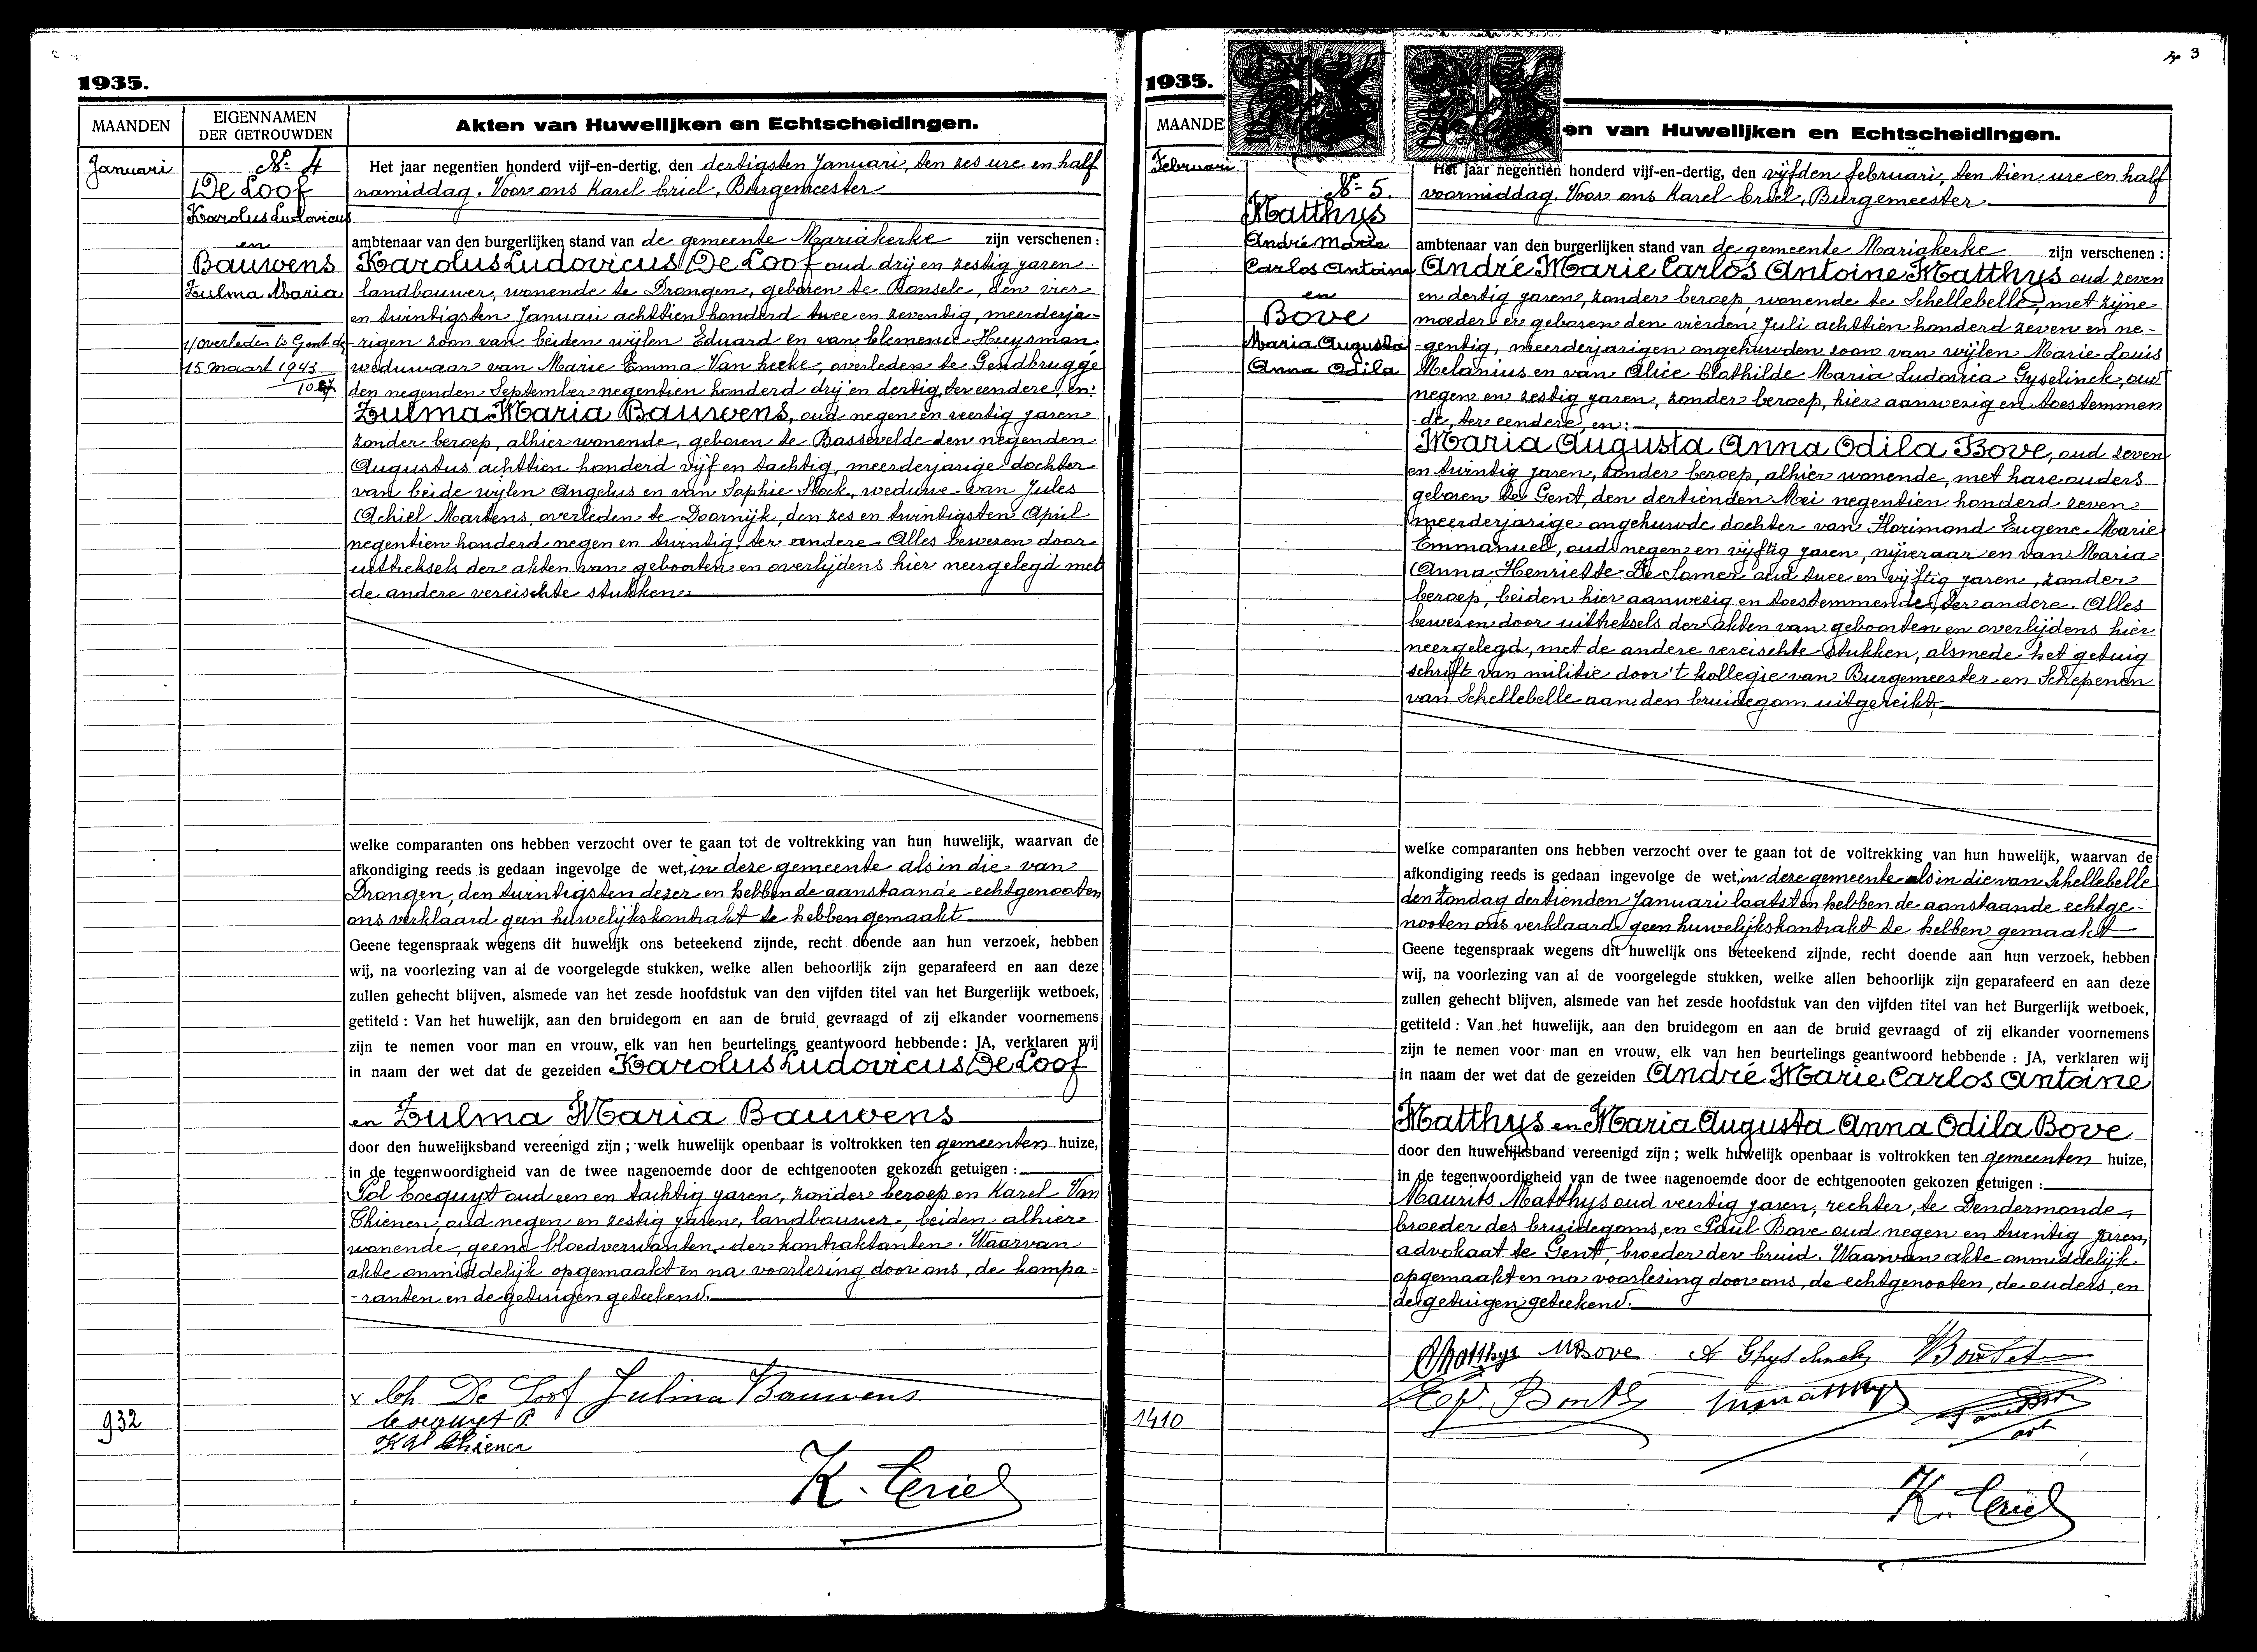 1935.
MAANDEN
EIGENNAMEN
DER GETROUWDEN
Akten van Huwelijken en Echtscheidingen.
Januari
No 4
De Loof
Karolus Ludovicus
en
Bauwens
Zulma Maria
1/ overleden te Gent de
15 maart 1943
Het jaar negentien honderd vijf-en-dertig, den dertigsten Januari, ten zes ure en half
namiddag. Voor ons Karel Criel, Burgemeester
ambtenaar van den burgerlijken stand van de gemeente Mariakerke zijn verschenen :
Karolus Ludovicus De Loof oud drij en zestig jaren
landbouwer, wonende te Drongen, geboren te Ronsele, den vier
en twintigsten Januari achttien honderd twee en zeventig, meerderja-
rigen zoon van beiden wijlen Eduard en van Clemence Huysman
weduwaar van Marie Emma Van hecke, overleden te Gendbrugge
den negenden September negentien honderd drij en dertig, ter eendere, en:
Zulma Maria Bauwens, oud negen en veertig jaren
zonder beroep, alhier wonende, geboren te Bassevelde den negenden
Augustus achttien honderd vijf en tachtig, meerderjarige dochter
van beide wijlen Angelus en van Sophie Stock, weduwe van Jules
Achiel Martens, overleden te Doornijk, den zes en twintigsten April
negentien honderd negen en twintig, ter andere. Alles bewezen door
uittreksels der akten van geboorten en overlijdens hier neergelegd met
de andere vereischte stukken.
welke comparanten ons hebben verzocht over te gaan tot de voltrekking van hun huwelijk, waarvan de
afkondiging reeds is gedaan ingevolge de wet, in deze gemeente als in die van
Drongen, den twintigsten dezer en hebben de aanstaande echtgenooten
ons verklaard geen huwelijkskontrakt te hebben gemaakt
Geene tegenspraak wegens dit huwelijk ons beteekend zijnde, recht doende aan hun verzoek, hebben
wij, na voorlezing van al de voorgelegde stukken, welke allen behoorlijk zijn geparafeerd en aan deze
zullen gehecht blijven, alsmede van het zesde hoofdstuk van den vijfden titel van het Burgerlijk wetboek,
getiteld : Van het huwelijk, aan den bruidegom en aan de bruid gevraagd of zij elkander voornemens
zijn te nemen voor man en vrouw, elk van hen beurtelings geantwoord hebbende: JA, verklaren wij
in naam der wet dat de gezeiden Karolus Ludovicus De Loof
en Zulma Maria Bauwens
door den huwelijksband vereenigd zijn ; welk huwelijk openbaar is voltrokken ten gemeenten huize,
in de tegenwoordigheid van de twee nagenoemde door de echtgenooten gekozen getuigen :
Pol Cocquyt oud een en tachtig jaren, zonder beroep en Karel Van
Thienen, oud negen en zestig jaren, landbouwer, beiden alhier
wonende, geene bloedverwanten der kontraktanten. Waarvan
akte onmiddelijk opgemaakt en na voorlezing door ons, de kompa-
-ranten en de getuigen geteekend.
x Ch De Loof Julma Bauwens
Cocquyt P.
932
K. Criel
3
1935.
MAANDE
en van Huwelijken en Echtscheidingen.
Februari
No 5.
Matthys
André Marie
Carlos Antoine
en
Bove
Maria Augusta
Anna Odila
Het jaar negentien honderd vijf-en-dertig, den vijfden februari, ten tien ure en half
voormiddag. Voor ons Karel Criel, Burgemeester
ambtenaar van den burgerlijken stand van de gemeente Mariakerke zijn verschenen :
André Marie Carlos Antoine Matthys oud zeven
en dertig jaren, zonder beroep, wonende te Schellebelle, met zijne
moeder er geboren den vierden Juli achttien honderd zeven en ne-
-gentig, meerderjarigen ongehuwden zoon van wijlen Marie Louis
Melanius en van Alice Clothilde Maria Ludovica Gyselinck, oud
negen en zestig jaren, zonder beroep, hier aanwezig en toestemmen
-de, ter eendere, en:
Maria Augusta Anna Odila Bove, oud zeven
en twintig jaren, zonder beroep, alhier wonende, met hare ouders
geboren te Gent, den dertienden Mei negentien honderd zeven
meerderjarige ongehuwde dochter van Florimond Eugene Marie
Emmanuel, oud negen en vijftig jaren, nijveraar en van Maria
Anna Henriette De Somer oud twee en vijftig jaren, zonder
beroep, beiden hier aanwezig en toestemmende, ter andere. Alles
bewezen door uittreksels der akten van geboorten en overlijdens hier
neergelegd, met de andere vereischte stukken, alsmede het getuig
schrift van militie door 't kollegie van Burgemeester en Schepenen
van Schellebelle aan den bruidegom uitgereikt
welke comparanten ons hebben verzocht over te gaan tot de voltrekking van hun huwelijk, waarvan de
afkondiging reeds is gedaan ingevolge de wet, in deze gemeente als in die van Schellebelle
den zondag dertienden Januari laatst en hebben de aanstaande echtge-
nooten ons verklaard geen huwelijkskontrakt te hebben gemaakt
Geene tegenspraak wegens dit huwelijk ons beteekend zijnde, recht doende aan hun verzoek, hebben
wij, na voorlezing van al de voorgelegde stukken, welke allen behoorlijk zijn geparafeerd en aan deze
zullen gehecht blijven, alsmede van het zesde hoofdstuk van den vijfden titel van het Burgerlijk wetboek,
getiteld : Van het huwelijk, aan den bruidegom en aan de bruid gevraagd of zij elkander voornemens
zijn te nemen voor man en vrouw, elk van hen beurtelings geantwoord hebbende : JA, verklaren wij
in naam der wet dat de gezeiden André Marie Carlos Antoine
Matthys en Maria Augusta Anna Odila Bove
door den huwelijksband vereenigd zijn ; welk huwelijk openbaar is voltrokken ten gemeenten huize,
in de tegenwoordigheid van de twee nagenoemde door de echtgenooten gekozen getuigen :
Maurits Matthys oud veertig jaren, rechter, te Dendermonde,
broeder des bruidegoms, en Paul Bove oud negen en twintig jaren,
advokaat te Gent, broeder der bruid. Waarvan akte onmiddelijk
opgemaakt en na voorlezing door ons, de echtgenooten, de ouders, en
de getuigen geteekend.
Matthys MBove
1410
K. Criel